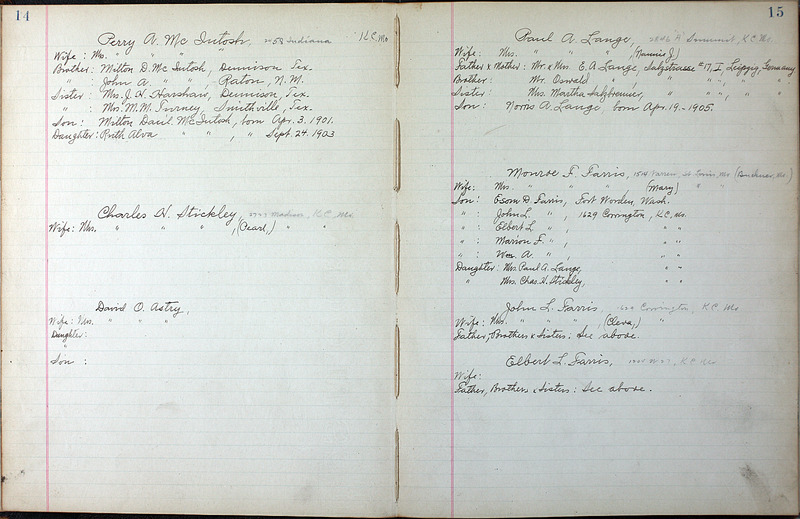 14
Perry A. Mc Intosh, 2458 Indiana K.C. Mo
Wife: Mrs. " " " "
Brother: Milton D. Mc Intosh, Dennison Tex.
" : John A. " " , Raton, N. M.
Sister: Mrs. J. H. Harshaw, Dennison, Tex.
" : Mrs. M. M. Turney, Smithville, Tex.
Son: Milton Daul. McIntosh, born Apr. 3. 1901.
Daughter: Ruth Alva " " , " Sept. 24. 1903
Charles H. Stickley, Madison, K.C. Mo.
Wife: Mrs. " " " , (Pearl,) " "
David O. Astry,
Wife: Mrs. " " "
Daughter:
"
Son :
15
Paul A. Lange, Summit, K.C. Mo.
Wife: Mrs. " " " , (Nannie J.)
Father & Mother: Mr. & Mrs. E. A. Lange, Salzstrasse #17, I, Leipzig, Germany
Brother: Mr. Oswald " " " , " "
Sister: Mrs. Martha Salzbrenner, " " " , " "
Son: Norris A. Lange, born Apr. 19 - 1905.
Monroe F. Farris, 1514 Warren, St Louis, Mo
Wife: Mrs. " " " (Mary) " "
Son: Esom D. Farris, Fort Worden, Wash.
" : John L. " , 1629 Covington, K.C. Mo.
" : Elbert L. " , " "
" : Marion F. " , " "
" : Wm. A. " , " "
Daughter: Mrs. Paul A. Lange, " "
" Mrs. Chas. H. Stickley, " "
John L. Farris, 1629 Covington, K.C. Mo
Wife: Mrs. " " " , (Cleva,) "
Father, Brothers & Sisters: See above.
Elbert L. Farris, K.C. Mo
Wife:
Father, Brothers & Sisters: See above.